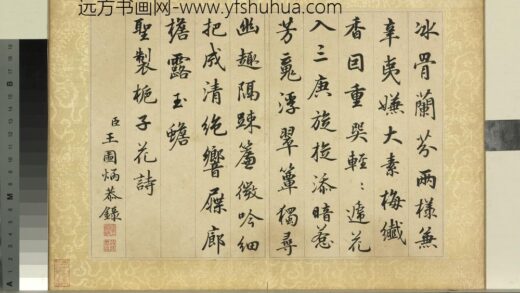 远方书画网-www.yfshuhua.com
冰骨蘭芬兩樣兼
辛夷嫌大素梅纖
香回重輕〻遠花
入三庚旋旋添暗惹
芳浮翠簟獨尋
幽趣隔疎簾微吟細
把清絕響屧廊
檐露玉蟾
聖製梔子花詩
臣王圖炳恭錄